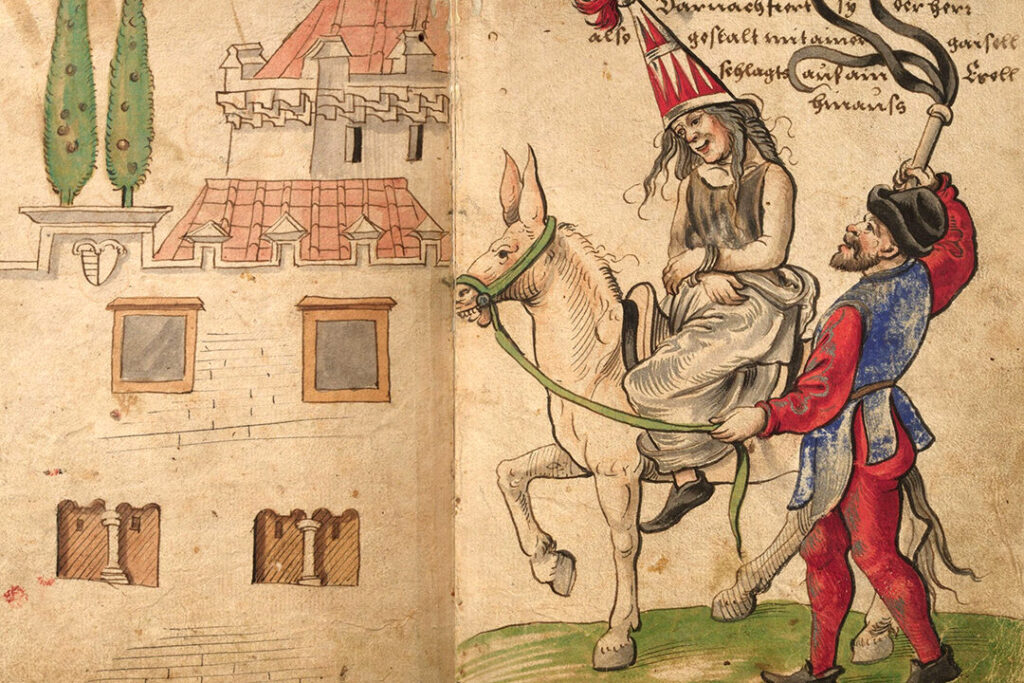 Darnachfiert sy der herr
also gestalt mit ainer gaisell
schlagts auf am Esell
hinauss